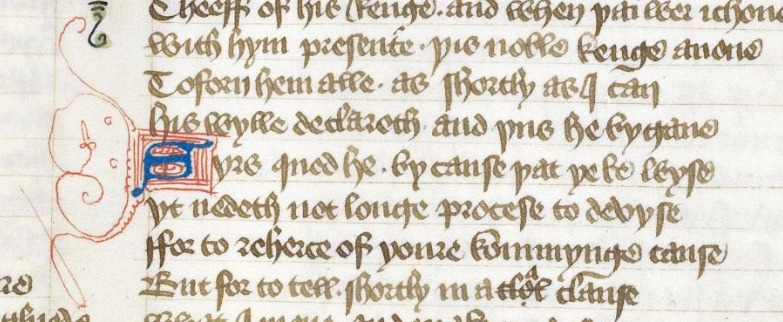 Cheeff of his kenge. and when þai wer ichon
with hym presente. þis noble kenge anone
Toforn hem alle. as shortly as I can
his wylle declareth. and þus he bygane
Syrs quod he. by cause þat ye be wyse
yt nedeth not longe procese to devyse
ffor to reherce of youre kommynge cause
But for to tell shortly in a clause